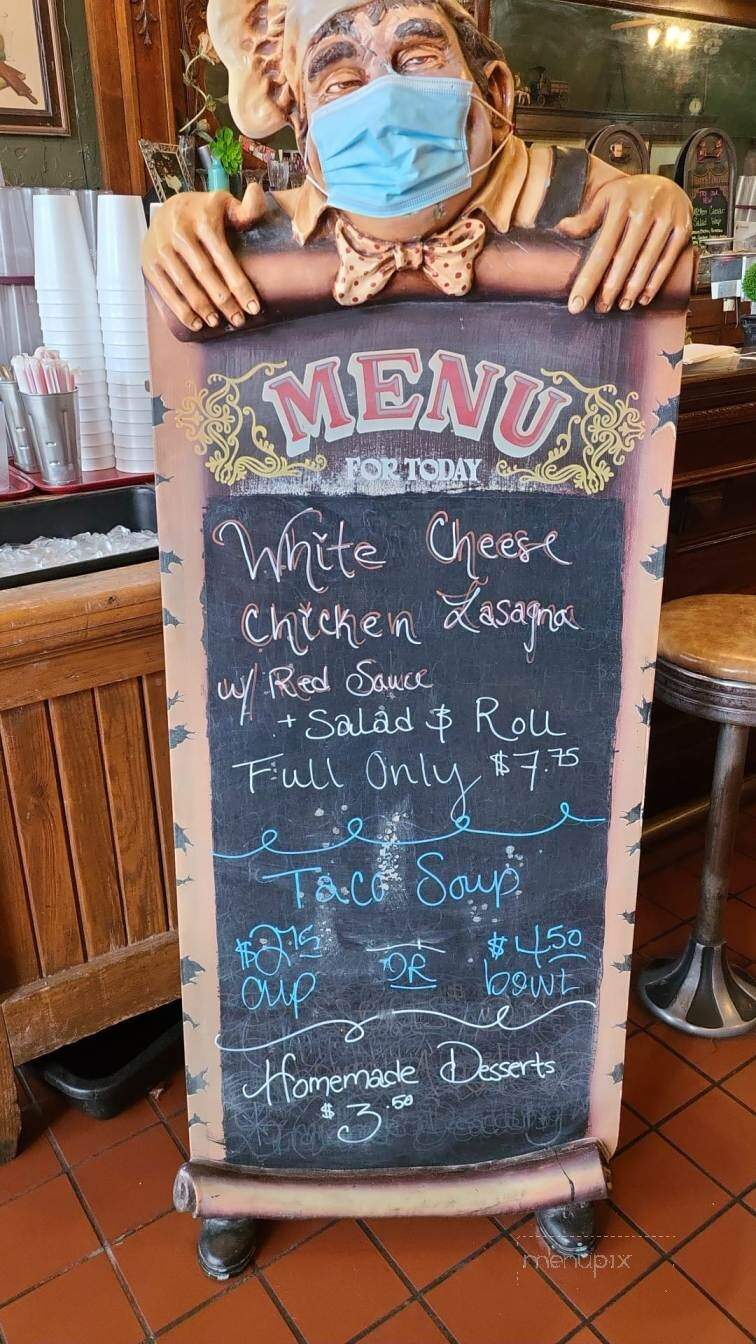 MENU
FOR TODAY
White Cheese
Chicken Lasagna
w/ Red Sauce
+ Salad $ Roll
Full Only $7.75
Taco Soup
$2.75 OR $4.50
cup bowl
Homemade Desserts
$3.50
menupix